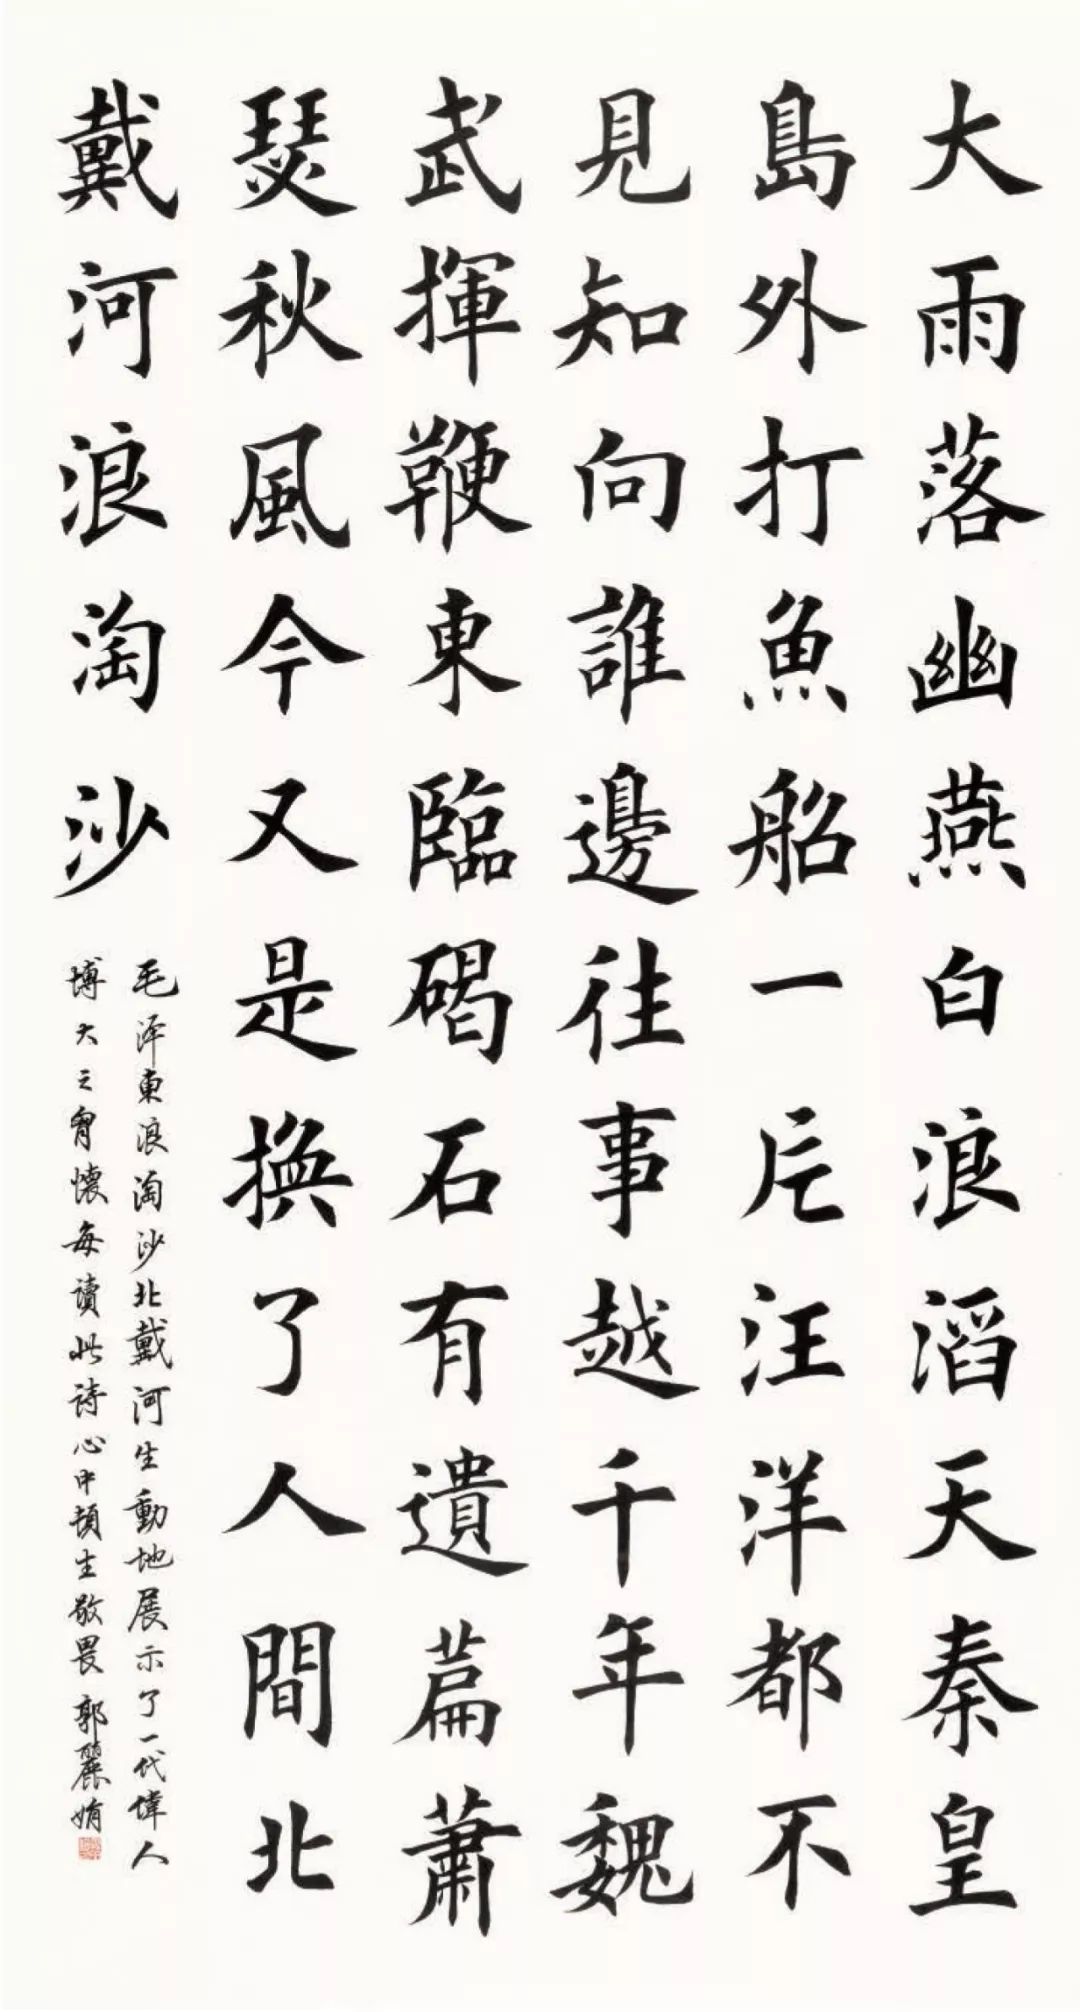 大雨落幽燕白浪滔天秦皇
島外打魚船一片汪洋都不
見知向誰邊往事越千年魏
武揮鞭東臨碣石有遺篇蕭
瑟秋風今又是換了人間北
戴河浪淘沙
毛澤東浪淘沙北戴河生動地展示了一代偉人
博大之胷懷每讀此詩心中頓生敬畏郭麗娟